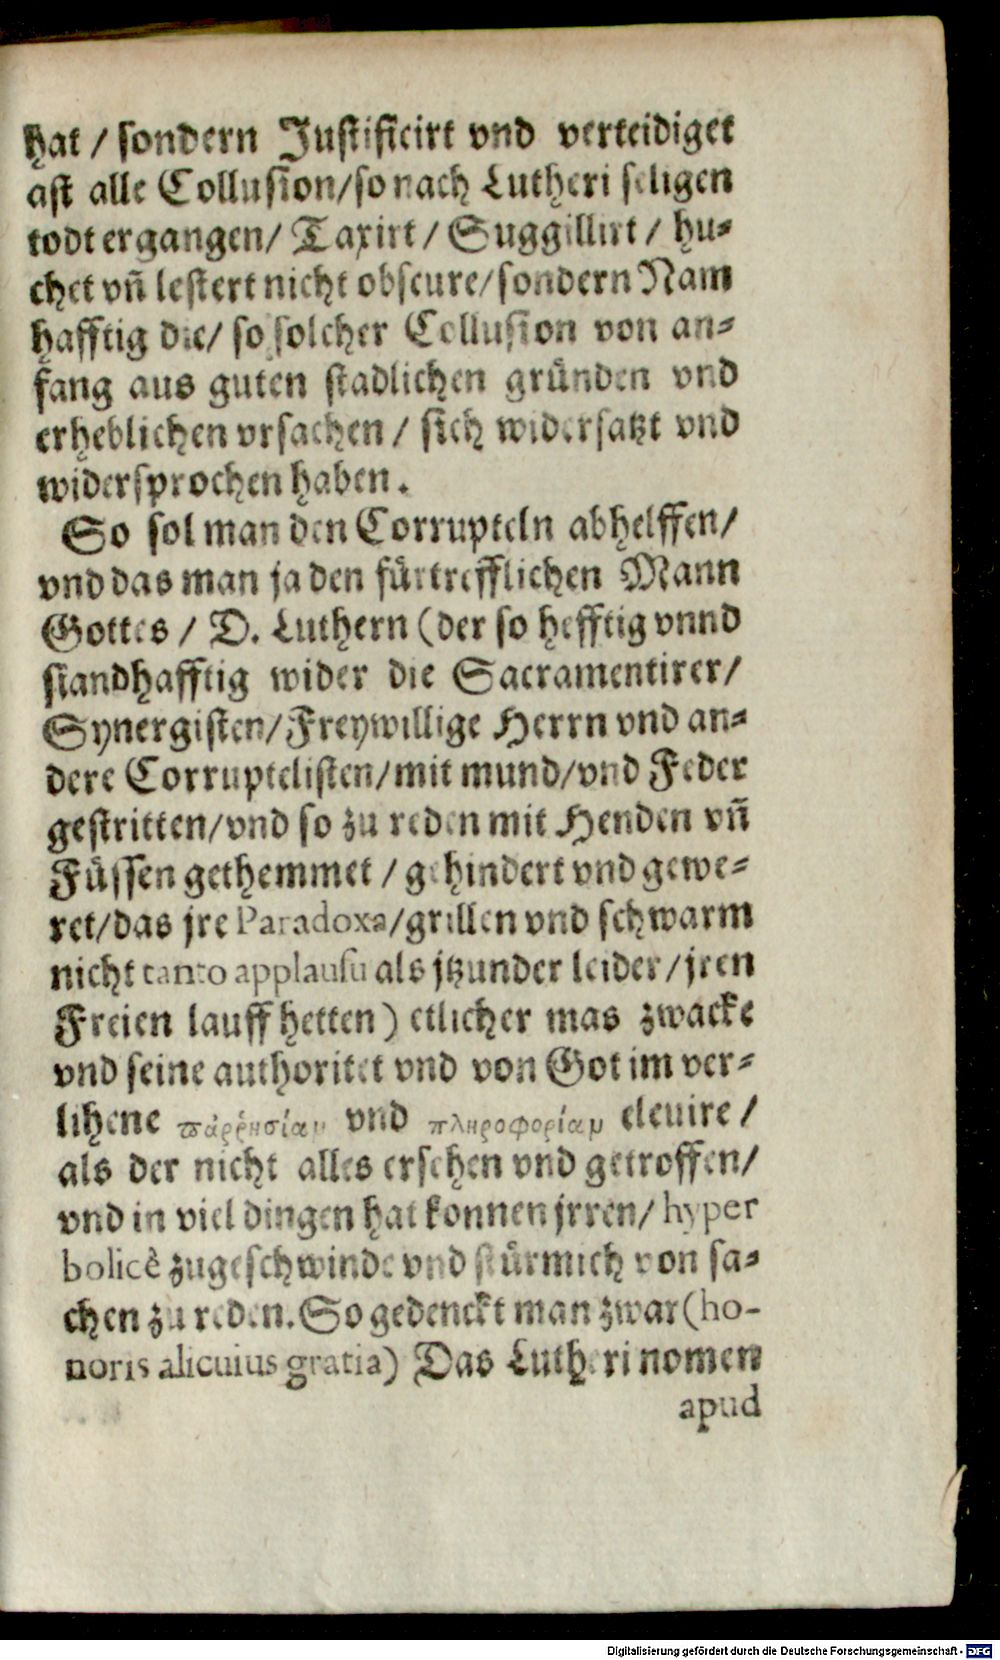 hat / sondern Justificirt vnd verteidiget
ast alle Collusion/so nach Lutheri seligen
todt ergangen/ Taxirt / Suggillirt / hu-
chet vñ lestert nicht obscure/sondern Nam
hafftig die/ so solcher Collusion von an-
fang aus guten stadlichen gründen vnd
erheblichen vrsachen / sich widersatzt vnd
widersprochen haben.
So sol man den Corrupteln abhelffen/
vnd das man ja den fürtrefflichen Mann
Gottes / D. Luthern (der so hefftig vnnd
standhafftig wider die Sacramentirer/
Synergisten/Freywillige Herrn vnd an-
dere Corruptelisten/mit mund/vnd Feder
gestritten/vnd so zu reden mit Henden vñ
Füssen gethemmet / gehindert vnd gewe-
ret/das jre Paradoxa/grillen vnd schwarm
nicht tanto applausu als jtzunder leider/jren
Freien lauff hetten) etlicher mas zwacke
vnd seine authoritet vnd von Got im ver-
lihene παῤῥησίαμ vnd πληροφορίαμ eleuire /
als der nicht alles ersehen vnd getroffen/
vnd in viel dingen hat konnen jrren/ hyper
bolicè zugeschwinde vnd stürmich von sa-
chen zu reden. So gedenckt man zwar (ho-
noris alicuius gratia) Das Lutheri nomen
apud
Digitalisierung gefördert durch die Deutsche Forschungsgemeinschaft - DFG